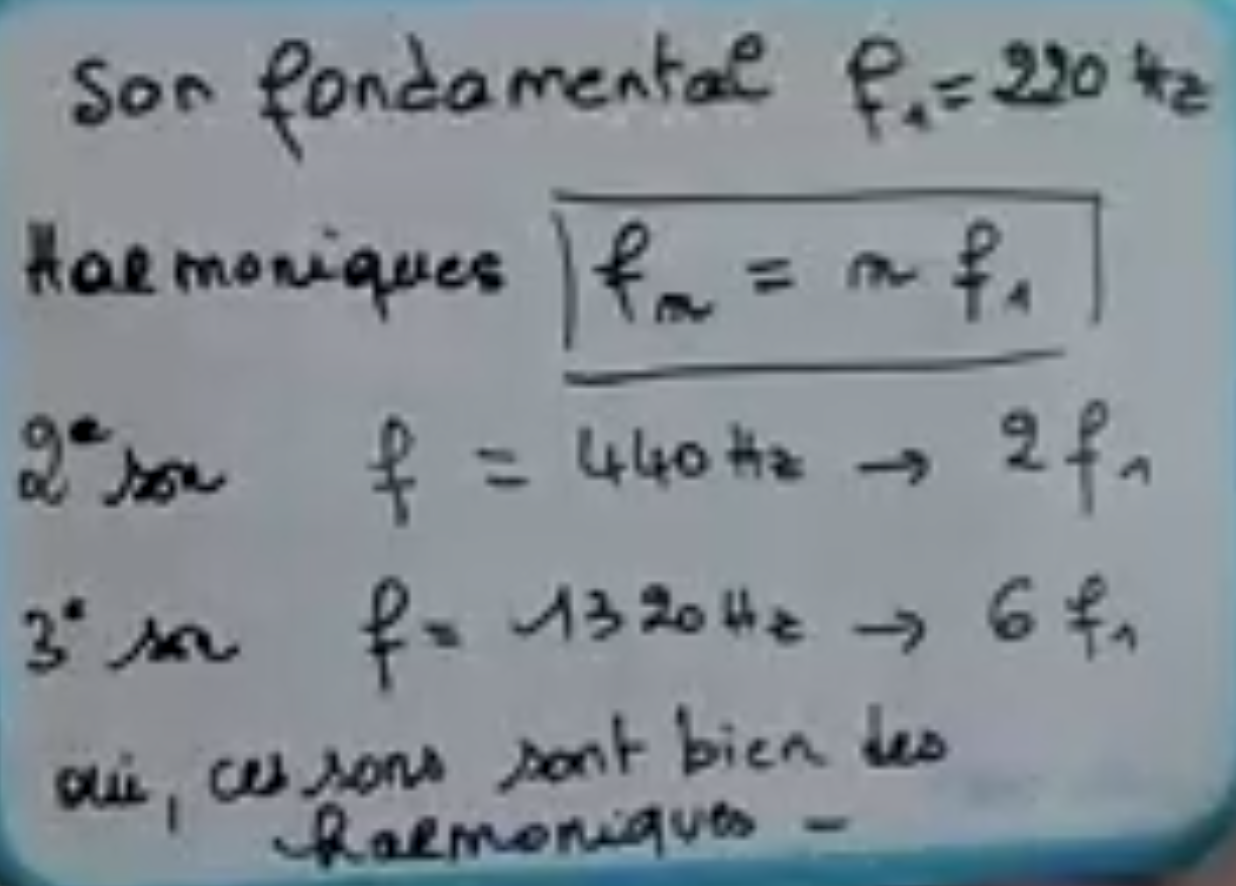 Son fondamental f₁ = 220 Hz
Harmoniques fₙ = n f₁
2e son f = 440 Hz → 2 f₁
3e son f = 1320 Hz → 6 f₁
oui, ces sons sont bien des
harmoniques -